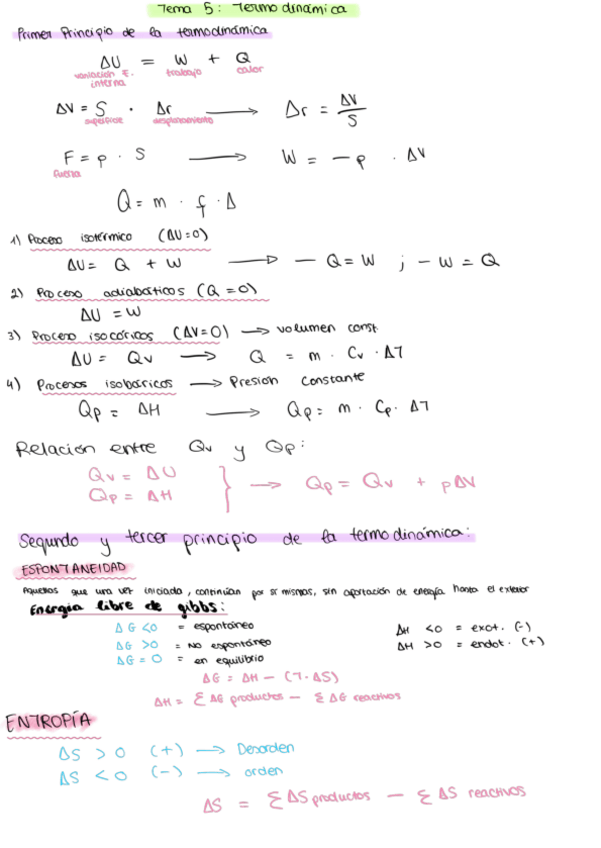 Tema 5: Termodinámica
Primer Principio de la termodinámica
ΔU = W + Q
variación E. interna trabajo calor
ΔV = S · Δr ⟶ Δr = ΔV/S
superficie desplazamiento
F = p · S ⟶ W = - p · ΔV
fuerza
Q = m · f · Δ
1) Proceso isotérmico (ΔU=0)
ΔU = Q + W ⟶ - Q = W ; - W = Q
2) Proceso adiabáticos (Q = 0)
ΔU = W
3) Proceso isocóricos (ΔV=0) ⟶ volumen const.
ΔU = Qv ⟶ Q = m · Cv · ΔT
4) Procesos isobáricos ⟶ Presion constante
Qp = ΔH ⟶ Qp = m · Cp · ΔT
Relación entre Qv y Qp:
Qv = ΔU
Qp = ΔH } ⟶ Qp = Qv + pΔV
Segundo y tercer principio de la termodinámica:
ESPONTANEIDAD
Aquellos que una vez iniciada, continúan por si mismos, sin aportación de energía hasta el exterior
Energía libre de gibbs:
ΔG <0 = espontáneo ΔH <0 = exot. (-)
ΔG >0 = NO espontáneo ΔH >0 = endot. (+)
ΔG = 0 = en equilibrio
ΔG = ΔH - (T·ΔS)
ΔH = Σ ΔG productos - Σ ΔG reactivos
ENTROPÍA
ΔS > 0 (+) ⟶ Desorden
ΔS < 0 (-) ⟶ orden
ΔS = Σ ΔS productos - Σ ΔS reactivos